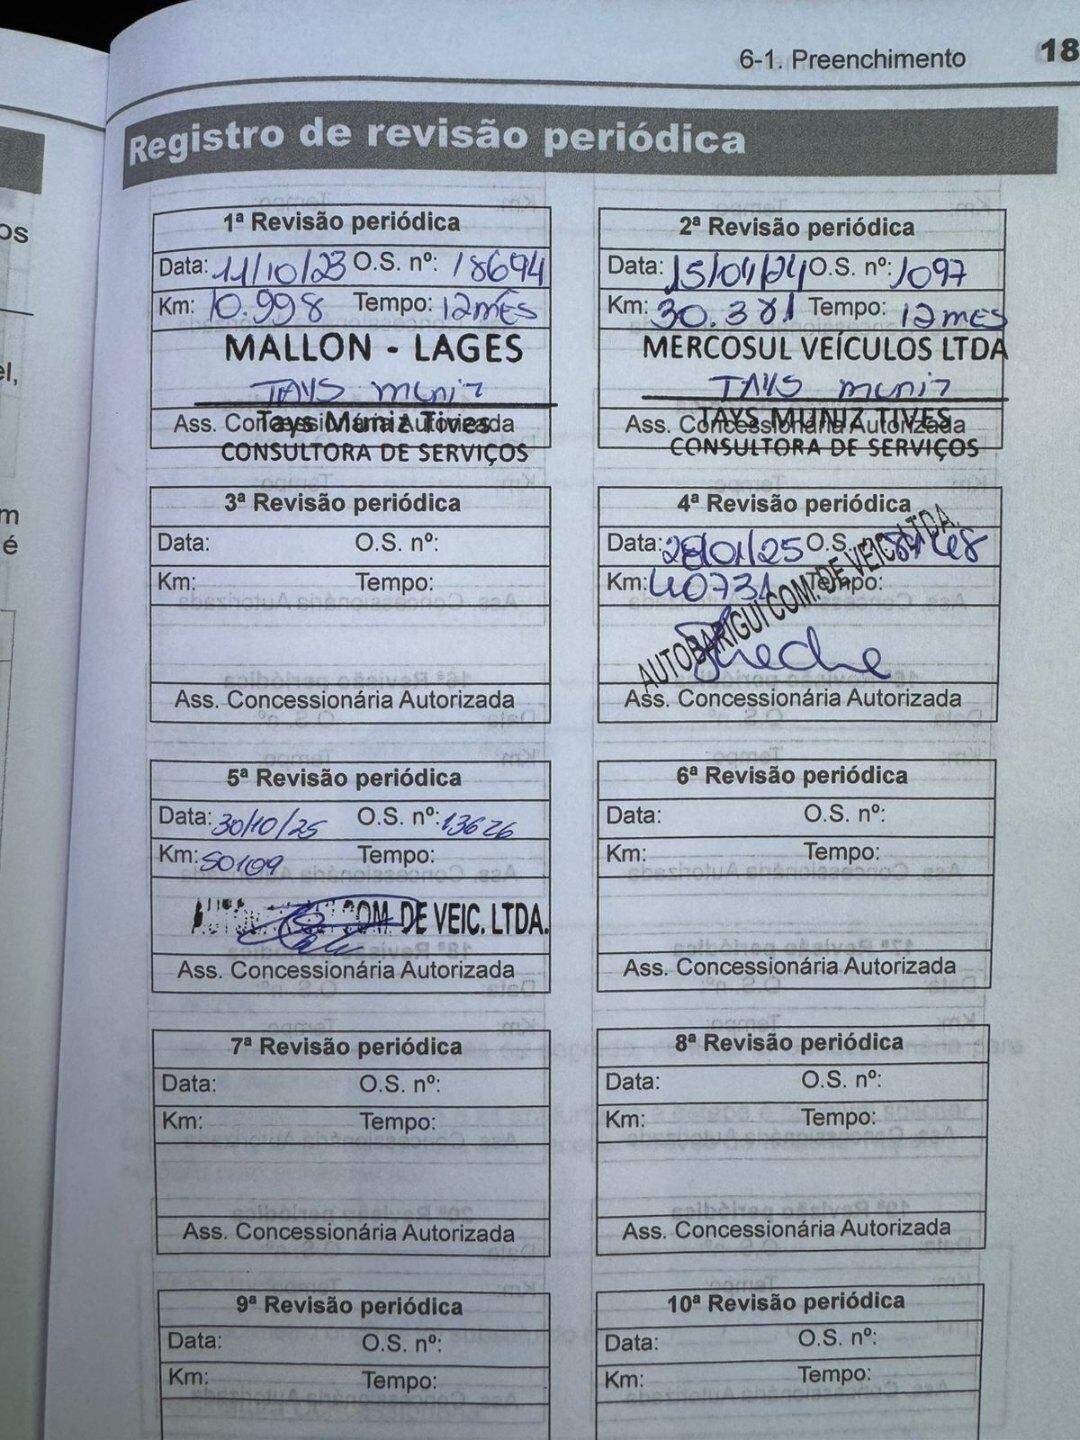 6-1. Preenchimento
18
Registro de revisão periódica
1ª Revisão periódica
Data: 11/10/23 O.S. nº: 18694
Km: 10.998 Tempo: 12 mês
MALLON - LAGES
TAYS MUNIZ
Ass. Concessionária Autorizada
Tays Muniz Tives
CONSULTORA DE SERVIÇOS
2ª Revisão periódica
Data: 15/04/24 O.S. nº: 1097
Km: 30.381 Tempo: 12 mês
MERCOSUL VEÍCULOS LTDA
TAYS MUNIZ
Ass. Concessionária Autorizada
TAYS MUNIZ TIVES
CONSULTORA DE SERVIÇOS
3ª Revisão periódica
Data: O.S. nº:
Km: Tempo:
Ass. Concessionária Autorizada
4ª Revisão periódica
Data: 28/01/25 O.S.
Km: 40731 Tempo:
AUTO BARIGUI COM. DE VEIC. LTDA.
Ass. Concessionária Autorizada
5ª Revisão periódica
Data: 30/10/25 O.S. nº: 13626
Km: 50109 Tempo:
COM. DE VEIC. LTDA.
Ass. Concessionária Autorizada
6ª Revisão periódica
Data: O.S. nº:
Km: Tempo:
Ass. Concessionária Autorizada
7ª Revisão periódica
Data: O.S. nº:
Km: Tempo:
Ass. Concessionária Autorizada
8ª Revisão periódica
Data: O.S. nº:
Km: Tempo:
Ass. Concessionária Autorizada
9ª Revisão periódica
Data: O.S. nº:
Km: Tempo:
10ª Revisão periódica
Data: O.S. nº:
Km: Tempo: